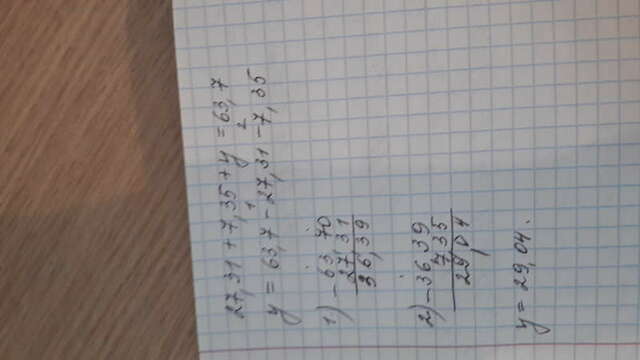 27,31 + 7,35 + y = 63,7
1 2
y = 63,7 - 27,31 - 7,35
1) - 63,70
27,31
36,39
2) - 36,39
7,35
29,04
y = 29,04.